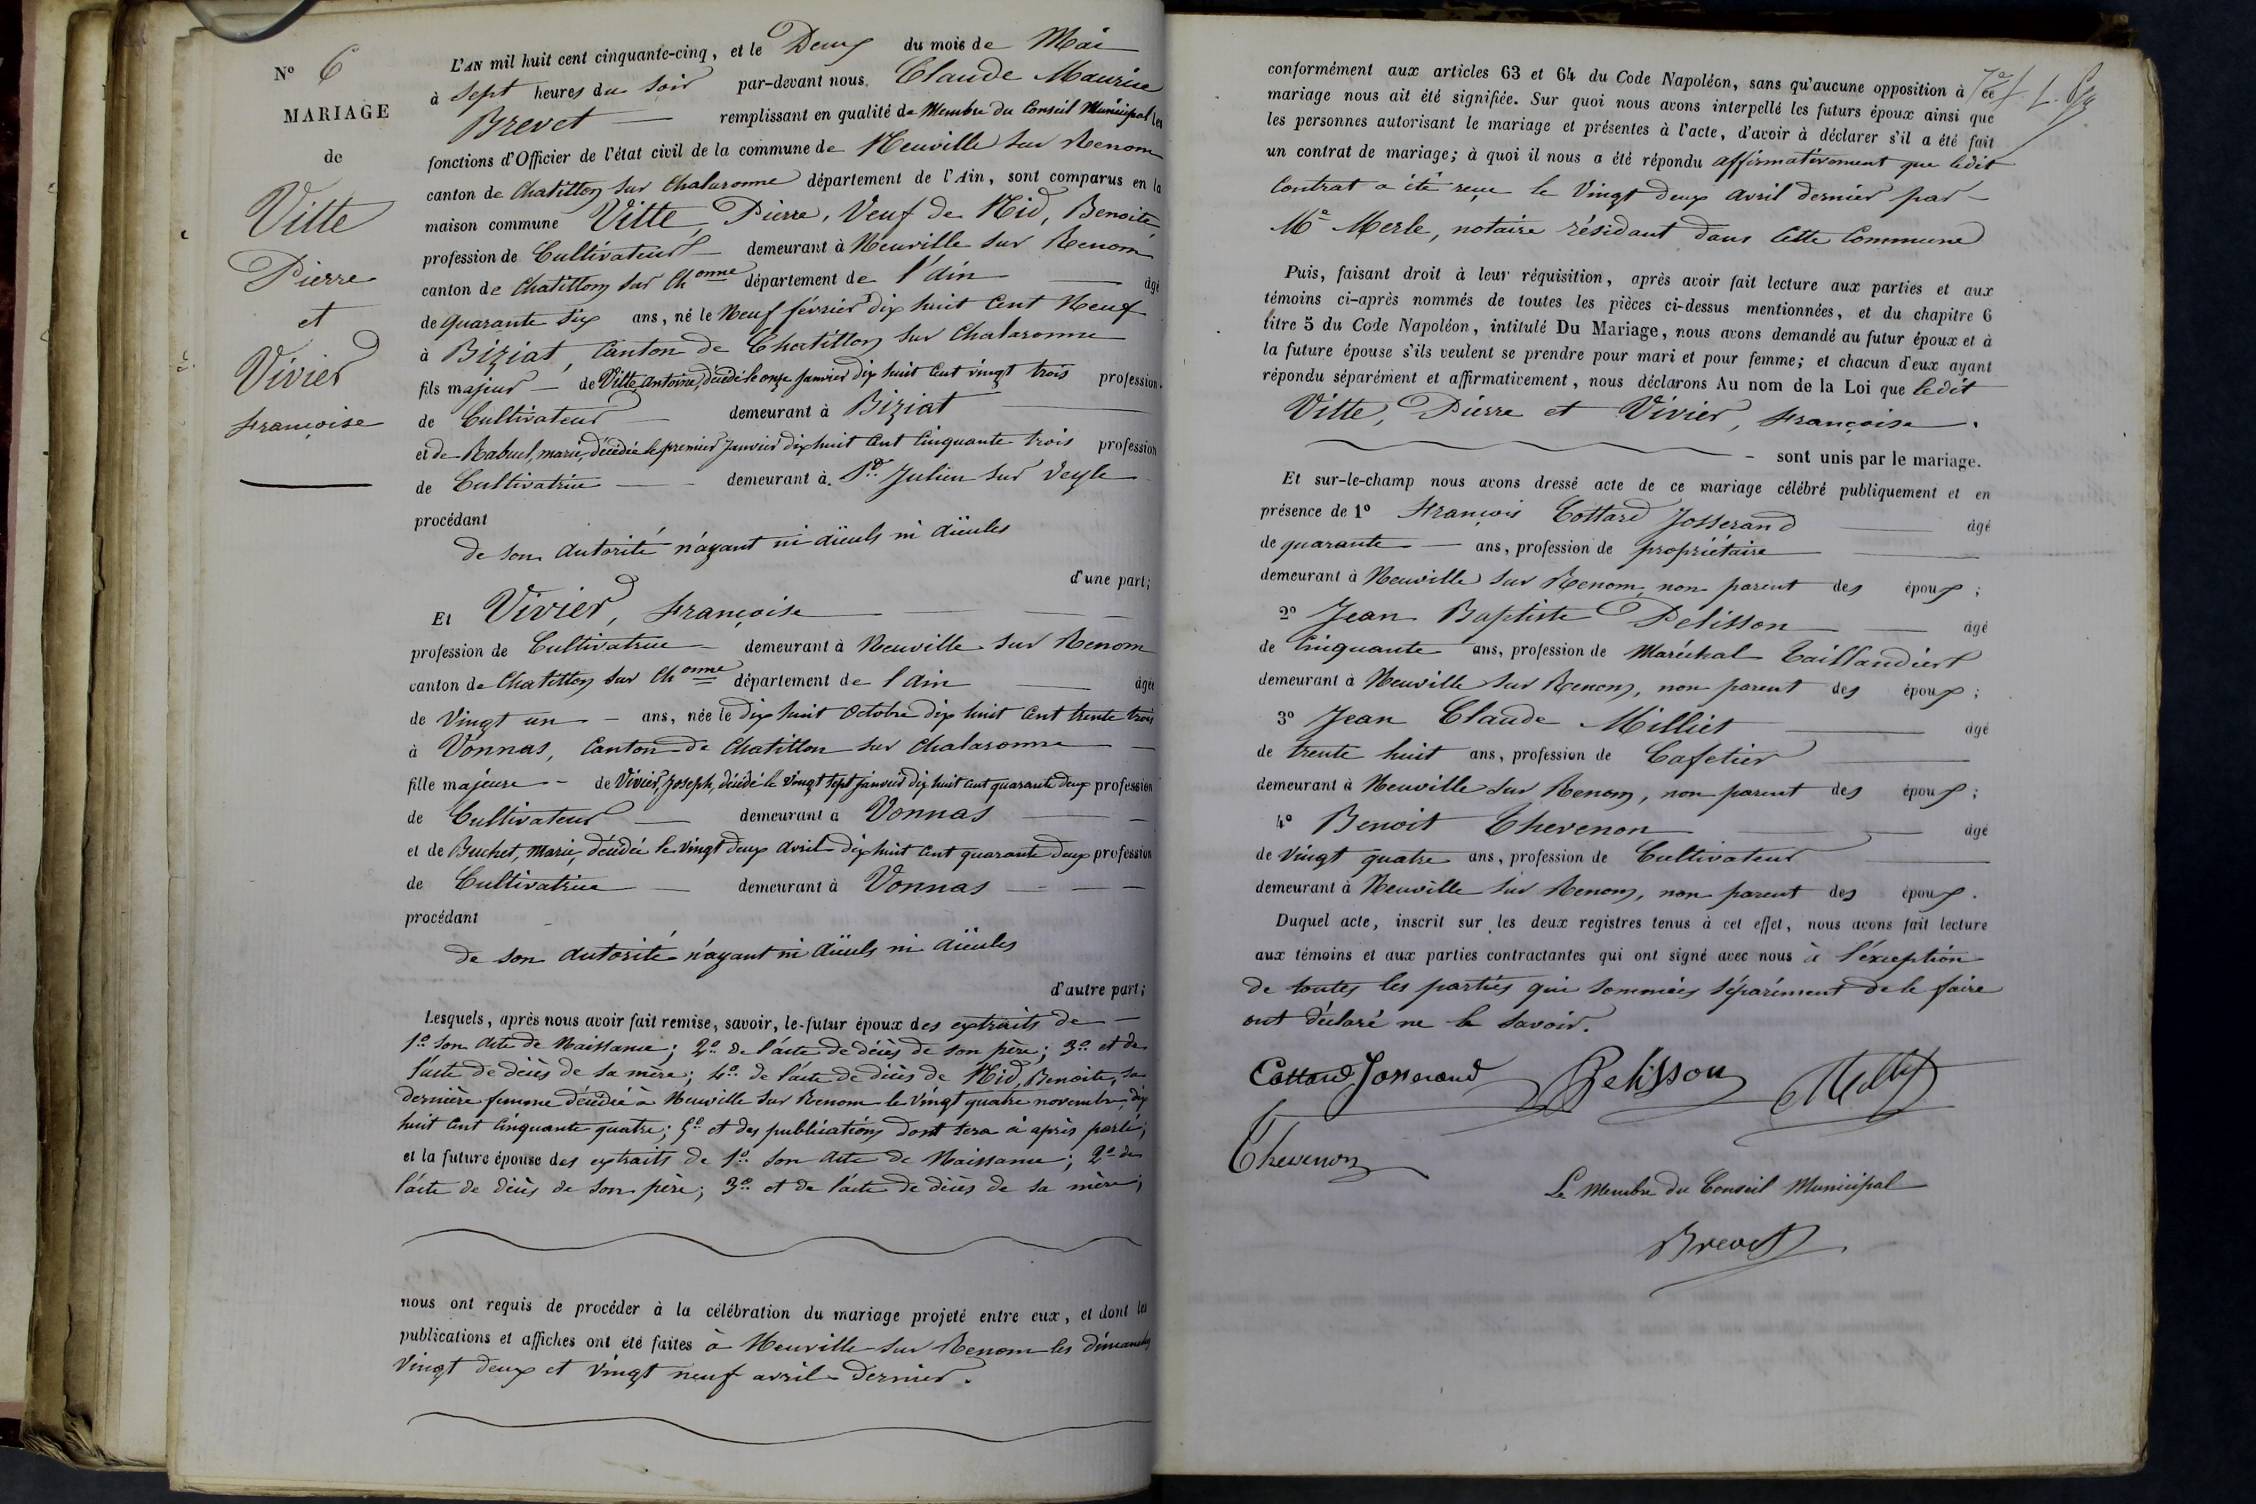 N° 6
MARIAGE
de
Vitte
Pierre
et
Vivier
Françoise
L'AN mil huit cent cinquante-cinq, et le Deux du mois de Mai
à sept heures du soir par-devant nous, Claude Maurice
Brevet — remplissant en qualité de Membre du Conseil Municipal les
fonctions d'Officier de l'état civil de la commune de Neuville sur Renom
canton de Chatillon sur Chalaronne département de l'Ain, sont comparus en la
maison commune Vitte, Pierre, Veuf de Nid, Benoite
profession de Cultivateur — demeurant à Neuville sur Renom
canton de Chatillon sur Chonne département de l'ain — âgé
de quarante six ans, né le Neuf février dix huit Cent Neuf
à Biziat, Canton de Chatillon sur Chalaronne
fils majeur — de Vitte, Antoine, décédé le onze Janvier dix huit Cent vingt trois profession
de Cultivateur — demeurant à Biziat
et de Rabuel, marie, décédée le premier Janvier dix huit Cent Cinquante trois profession
de Cultivatrice — demeurant à St. Julien sur Veyle
procédant
de son autorité n'ayant ni aïeuls ni aïeules
d'une part;
Et Vivier, Françoise
profession de Cultivatrice — demeurant à Neuville sur Renom
canton de Chatillon sur Chonne département de l'ain — âgée
de Vingt un — ans, née le dix huit Octobre dix huit Cent trente trois
à Vonnas, Canton de Chatillon sur Chalaronne —
fille majeure — de Vivier, Joseph, décédé le Vingt sept janvier dix huit Cent quarante deux profession
de Cultivateur — demeurant à Vonnas
et de Buchet, Marie, décédée le vingt deux Avril dix huit Cent quarante deux profession
de Cultivatrice — demeurant à Vonnas — — —
procédant
de son autorité n'ayant ni aïeuls ni aïeules
d'autre part;
Lesquels, après nous avoir fait remise, savoir, le futur époux des extraits de —
1° son Acte de Naissance; 2° de l'acte de décès de son père; 3° et de
l'acte de décès de sa mère; 4° de l'acte de décès de Nid, Benoite, sa
dernière femme décédée à Neuville sur Renom le Vingt quatre novembre dix
huit Cent Cinquante quatre; 5° et des publications dont sera ci après parlé;
et la future épouse des extraits de 1° son Acte de Naissance; 2° de
l'acte de décès de son père; 3° et de l'acte de décès de sa mère;
nous ont requis de procéder à la célébration du mariage projeté entre eux, et dont les
publications et affiches ont été faites à Neuville sur Renom les dimanches
Vingt deux et vingt neuf avril dernier.
conformément aux articles 63 et 64 du Code Napoléon, sans qu'aucune opposition à ce
mariage nous ait été signifiée. Sur quoi nous avons interpellé les futurs époux ainsi que
les personnes autorisant le mariage et présentes à l'acte, d'avoir à déclarer s'il a été fait
un contrat de mariage; à quoi il nous a été répondu affirmativement que ledit
Contrat a été reçu le Vingt deux avril dernier par —
Me Merle, notaire résidant dans cette Commune
Puis, faisant droit à leur réquisition, après avoir fait lecture aux parties et aux
témoins ci-après nommés de toutes les pièces ci-dessus mentionnées, et du chapitre 6
titre 5 du Code Napoléon, intitulé Du Mariage, nous avons demandé au futur époux et à
la future épouse s'ils veulent se prendre pour mari et pour femme; et chacun d'eux ayant
répondu séparément et affirmativement, nous déclarons Au nom de la Loi que ledit
Vitte, Pierre et Vivier, Françoise.
— sont unis par le mariage.
Et sur-le-champ nous avons dressé acte de ce mariage célébré publiquement et en
présence de 1° François Cottard Josserand — âgé
de quarante — ans, profession de propriétaire
demeurant à Neuville sur Renom, non parent des époux;
2° Jean Baptiste Pelisson — âgé
de Cinquante ans, profession de Maréchal Taillandier
demeurant à Neuville sur Renom, non parent des époux;
3° Jean Claude Milliet — âgé
de trente huit ans, profession de Cafetier
demeurant à Neuville sur Renom, non parent des époux;
4° Benoit Thevenon — âgé
de Vingt quatre ans, profession de Cultivateur
demeurant à Neuville sur Renom, non parent des époux.
Duquel acte, inscrit sur les deux registres tenus à cet effet, nous avons fait lecture
aux témoins et aux parties contractantes qui ont signé avec nous à l'éxception
de toutes les parties qui sommées séparément de le faire
ont déclaré ne le savoir.
Cottard Josserand Pelisson
Thevenon
Le Membre du Conseil Municipal
Brevet